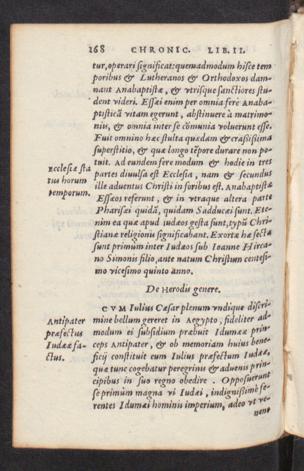 168 CHRONIC. LIB. II.
tur, operari significat: quemadmodum hisce tem
poribus & Lutheranos & Orthodoxos dam-
nant Anabaptistæ, & vtrisque sanctiores stu-
dent videri. Essæi enim per omnia ferè Anaba-
ptisticā vitam egerunt, abstinuere à matrimo-
nijs, & omnia inter se cōmunia voluerunt esse.
Fuit omnino hæc stulta quædam & crassissima
superstitio, & quæ longo tēpore durare non po-
tuit. Ad eundem fere modum & hodie in tres
Ecclesiæ sta
tus horum
temporum.
partes diuulsa est Ecclesia, nam & secundus
ille aduentus Christi in foribus est. Anabaptistæ
Essæos referunt, & in vtraque altera parte
Pharisæi quidā, quidam Sadducæi sunt. Ete-
nim ea quæ apud iudæos gesta sunt, typū Chri-
stianæ religionis significabant. Exortæ hæ sectæ
sunt primùm inter Iudæos sub Ioanne Hirca-
no Simonis filio, ante natum Christum centesi-
mo vicesimo quinto anno.
De Herodis genere.
CVM Iulius Cæsar plenum vndique discri-
Antipater
præfectus
Iudææ fa-
ctus.
mine bellum gereret in Aegypto, fideliter ad-
modum ei subsidium præbuit Idumææ prin-
ceps Antipater, & ob memoriam huius bene-
ficij constituit eum Iulius præfectum Iudææ,
quæ tunc cogebatur peregrinis & aduenis prin-
cipibus in suo regno obedire. Opposuerunt
se primùm magna vi Iudæi, indignissimè fe-
rentes Idumæi hominis imperium, adeo vt ve-